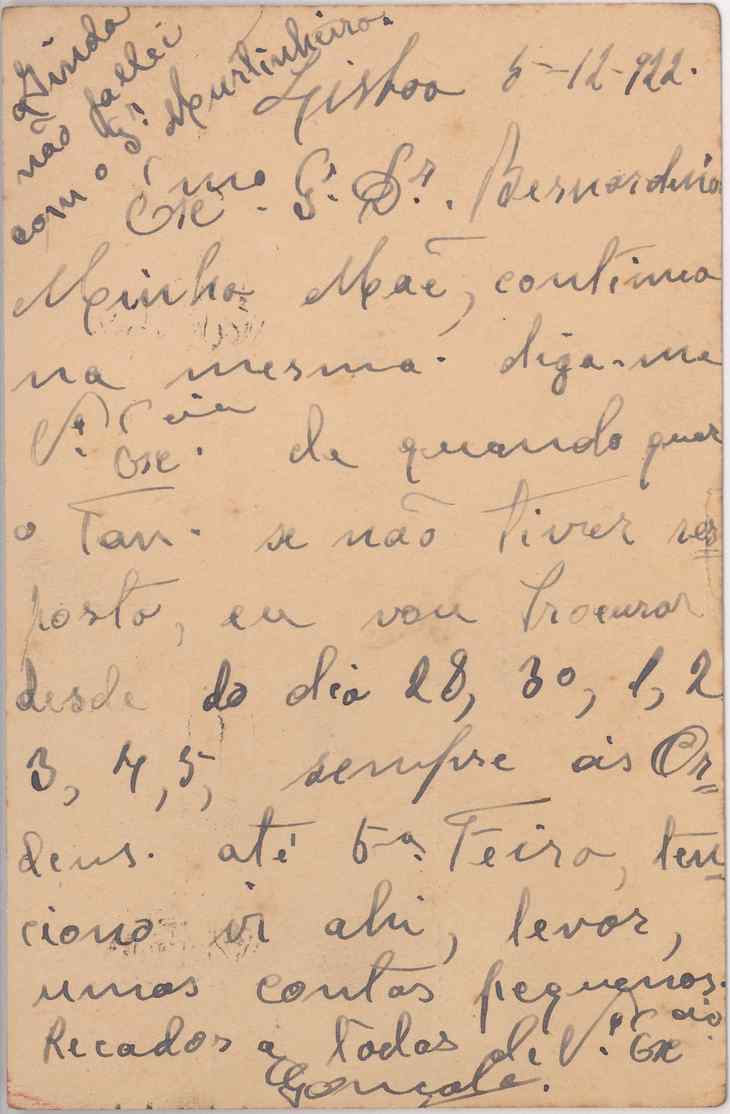 Ainda
não fallei
com o Sr. Martinheira.
Lisboa 5-12-922.
Exmo. Sr. Dr. Bernardino
Minha Mãe, continua
na mesma. diga-me
V. Excia. de quando quer
o Tan. se não tiver res
posta, eu vou Procurar
desde do dia 28, 30, 1, 2
3, 4, 5, sempre ás Or
dens. até 5ª Feira, ten
ciono vir ahi, levar,
umas contas pequenas.
Recados a todas de V. Excia
Gonçalo.